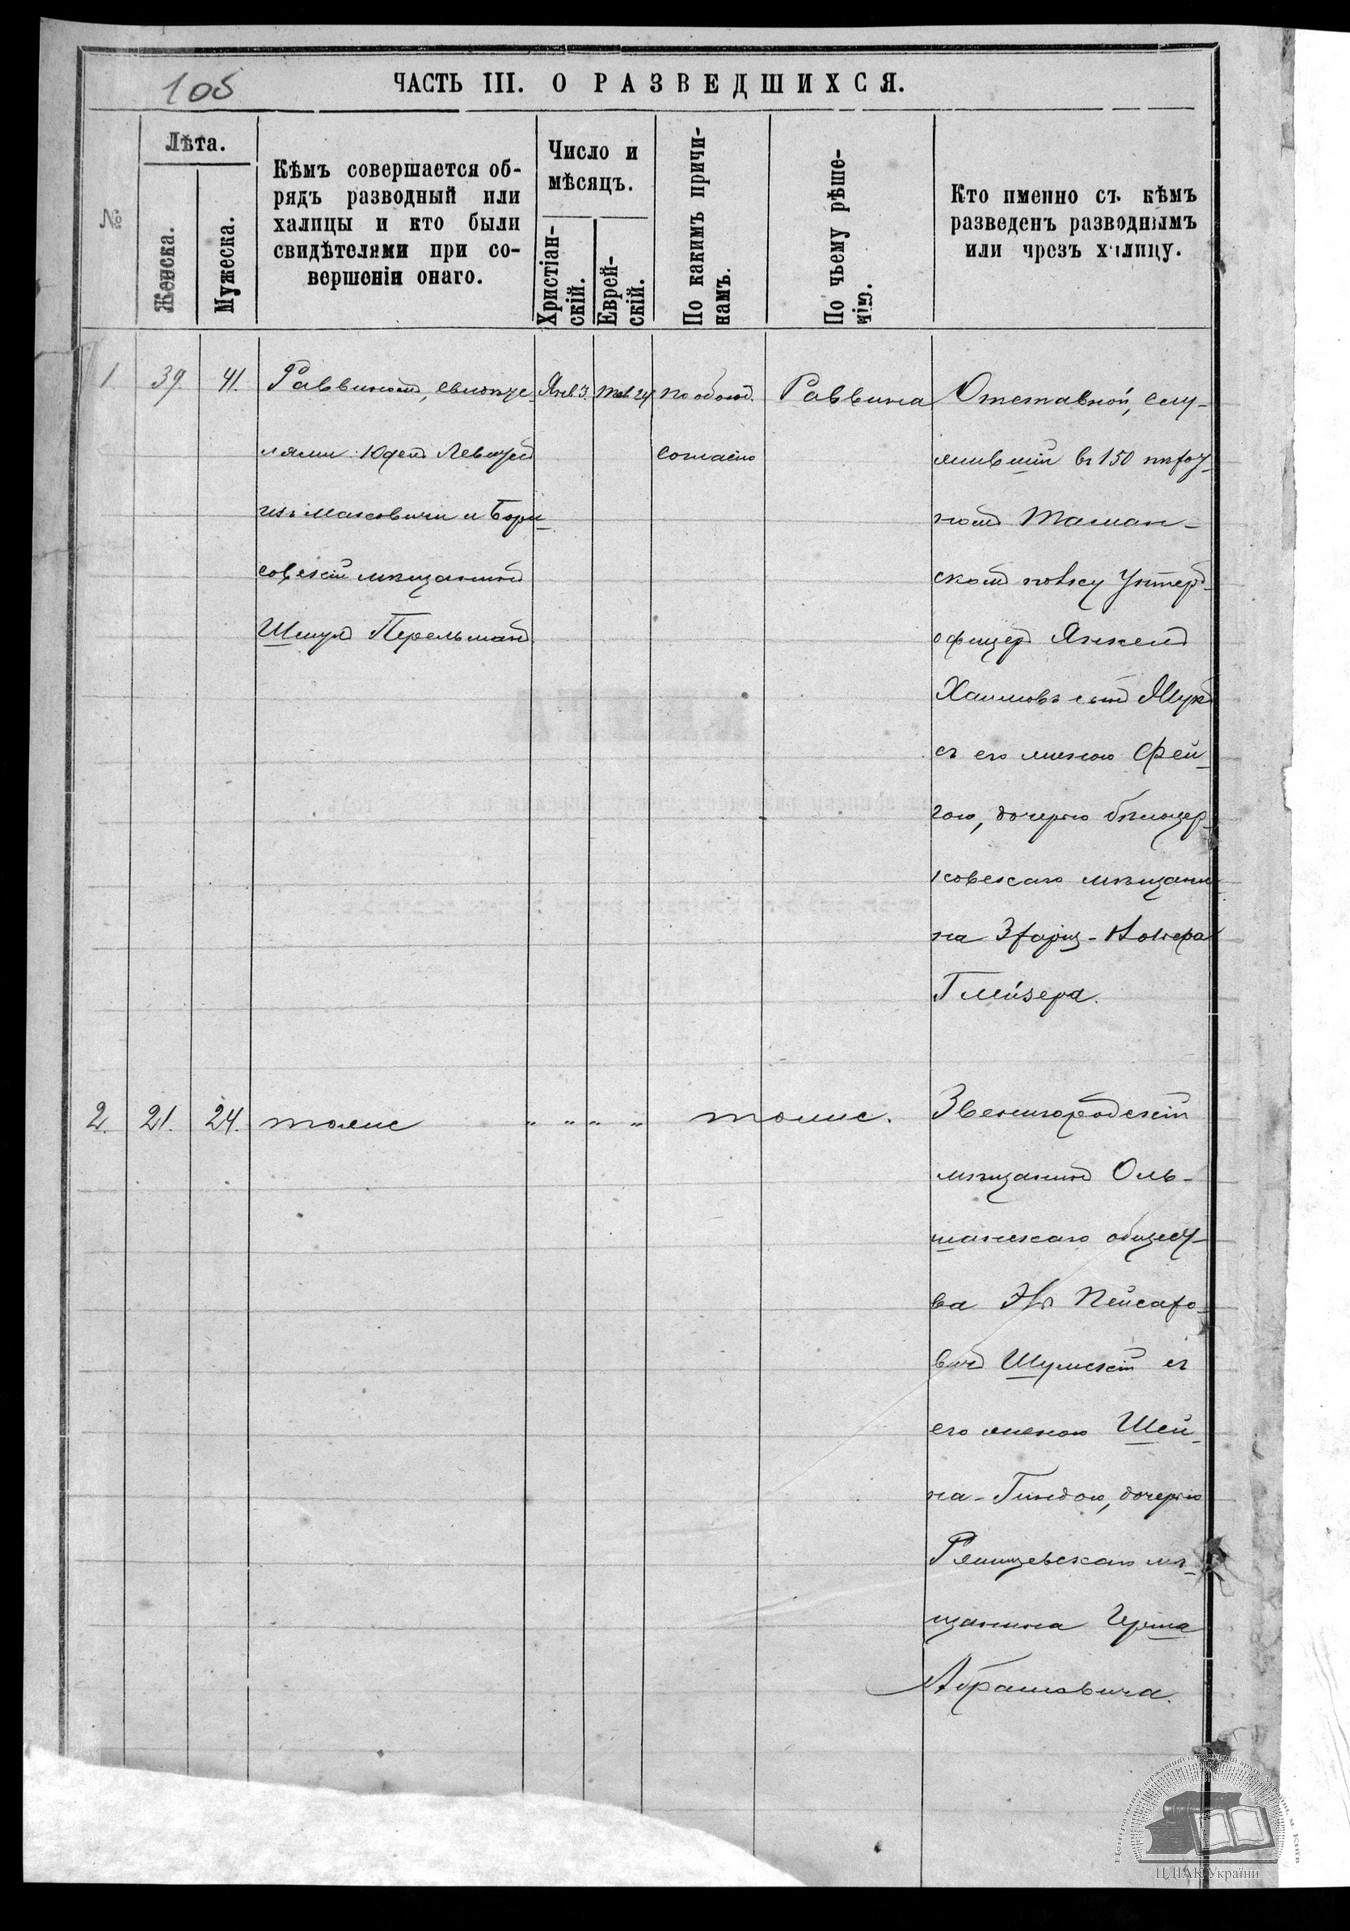 105
ЧАСТЬ III. О РАЗВЕДШИХСЯ.
№
Лѣта.
Женска.
Мужеска.
Кѣмъ совершается об-
рядъ разводный или
халицы и кто были
свидѣтелями при со-
вершеніи онаго.
Число и
мѣсяцъ.
Христіан-
скій.
Еврей-
скій.
По какимъ причи-
намъ.
По чьему рѣше-
нію.
Кто именно съ кѣмъ
разведенъ разводнымъ
или чрезъ халицу.
1 39 41.
Раввиномъ,
и Бори-
совскій мѣщанинъ
Шмулъ Перельманъ.
Янв 3.
по обоюд.
согласію
Раввина
Отставной, слу-
жившій въ 150 пѣхот-
номъ Таман-
скомъ полку Унтеръ-
офицеръ Янкель
Хаимовъ сынъ Жукъ
съ его женою Фей-
гою, дочерью бѣлоцер-
ковскаго мѣщани-
на
Глейзера.
2. 21. 24. тоже " " " " тоже.
Звенигородскій
мѣщанинъ Оль-
шанскаго общест-
ва Пейсахо-
вичъ Шумскій съ
его женою Шей-
на-Гиндою, дочерью
Ржищевскаго мѣ-
щанина Герша
Абрамовича.
ЦДІАК України